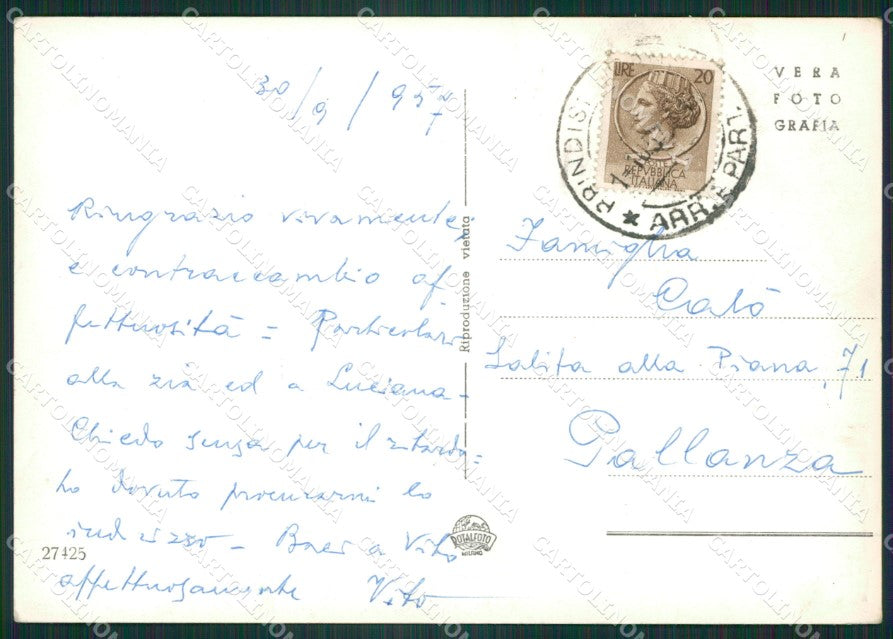 30/9/957
Ringrazio vivamente,
e contraccambio af=
fettuosità = Particolari
alla zia ed a Luciana -
Chiedo scusa per il ritardo =
ho dovuto procurarmi lo
indirizzo - Baci a Vito
affettuosamente Vito
27425
Riproduzione vietata
ROTALFOTO
MILANO
LIRE 20
POSTE
REPVBBLICA
ITALIANA
BRINDISI
ARR. E PART.
VERA
FOTO
GRAFIA
Famiglia
Calò
Salita alla Piana, 71
Pallanza
CARTOLINOMANIA